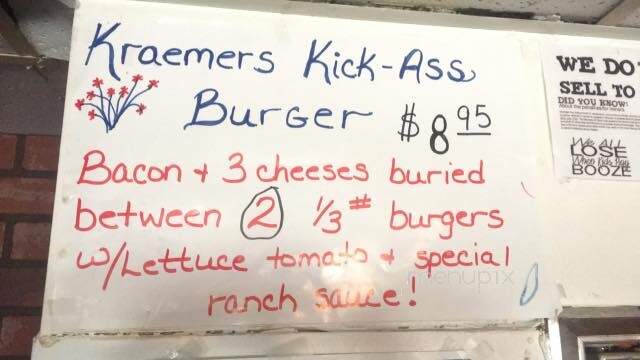 Kraemers Kick-Ass
Burger $8.95
Bacon + 3 cheeses buried
between 2 1/3# burgers
w/Lettuce tomato + special
ranch sauce!
menupix
WE DO
SELL TO
DID YOU KNOW?
We ALL
LOSE
When Kids Buy
BOOZE